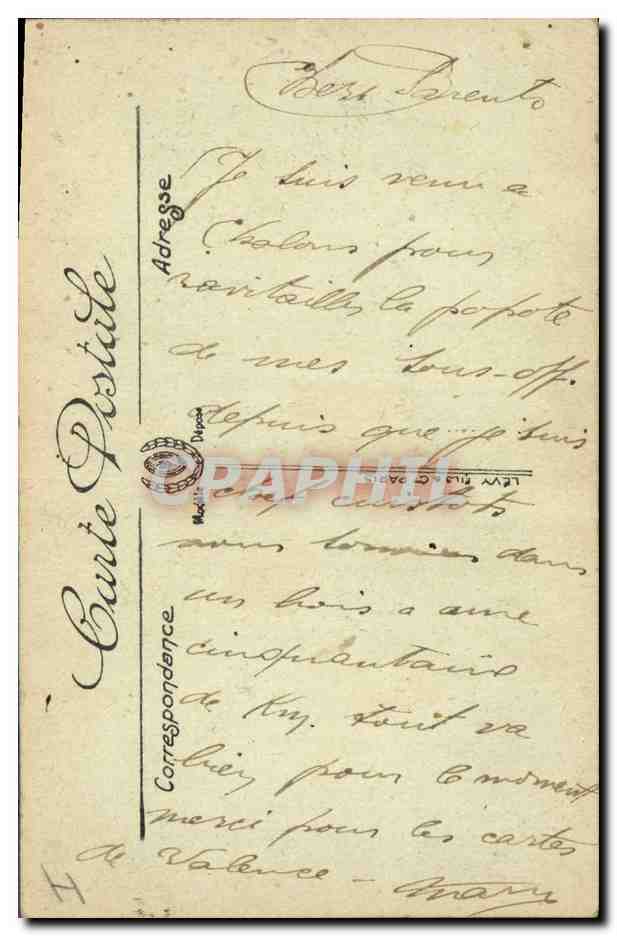 Chers Parents
Je suis venu a
Chalons pour
ravitailler la popote
de mes sous-off.
depuis que je suis
chef cuistots
nous sommes dans
un bois a une
cinquantaine
de Km. tout va
bien pour le moment
merci pour les cartes
de Valence -
Carte Postale
Adresse
Correspondance
Modèle Déposé
LÉVY FILS & Cie PARIS
CPAPHIL